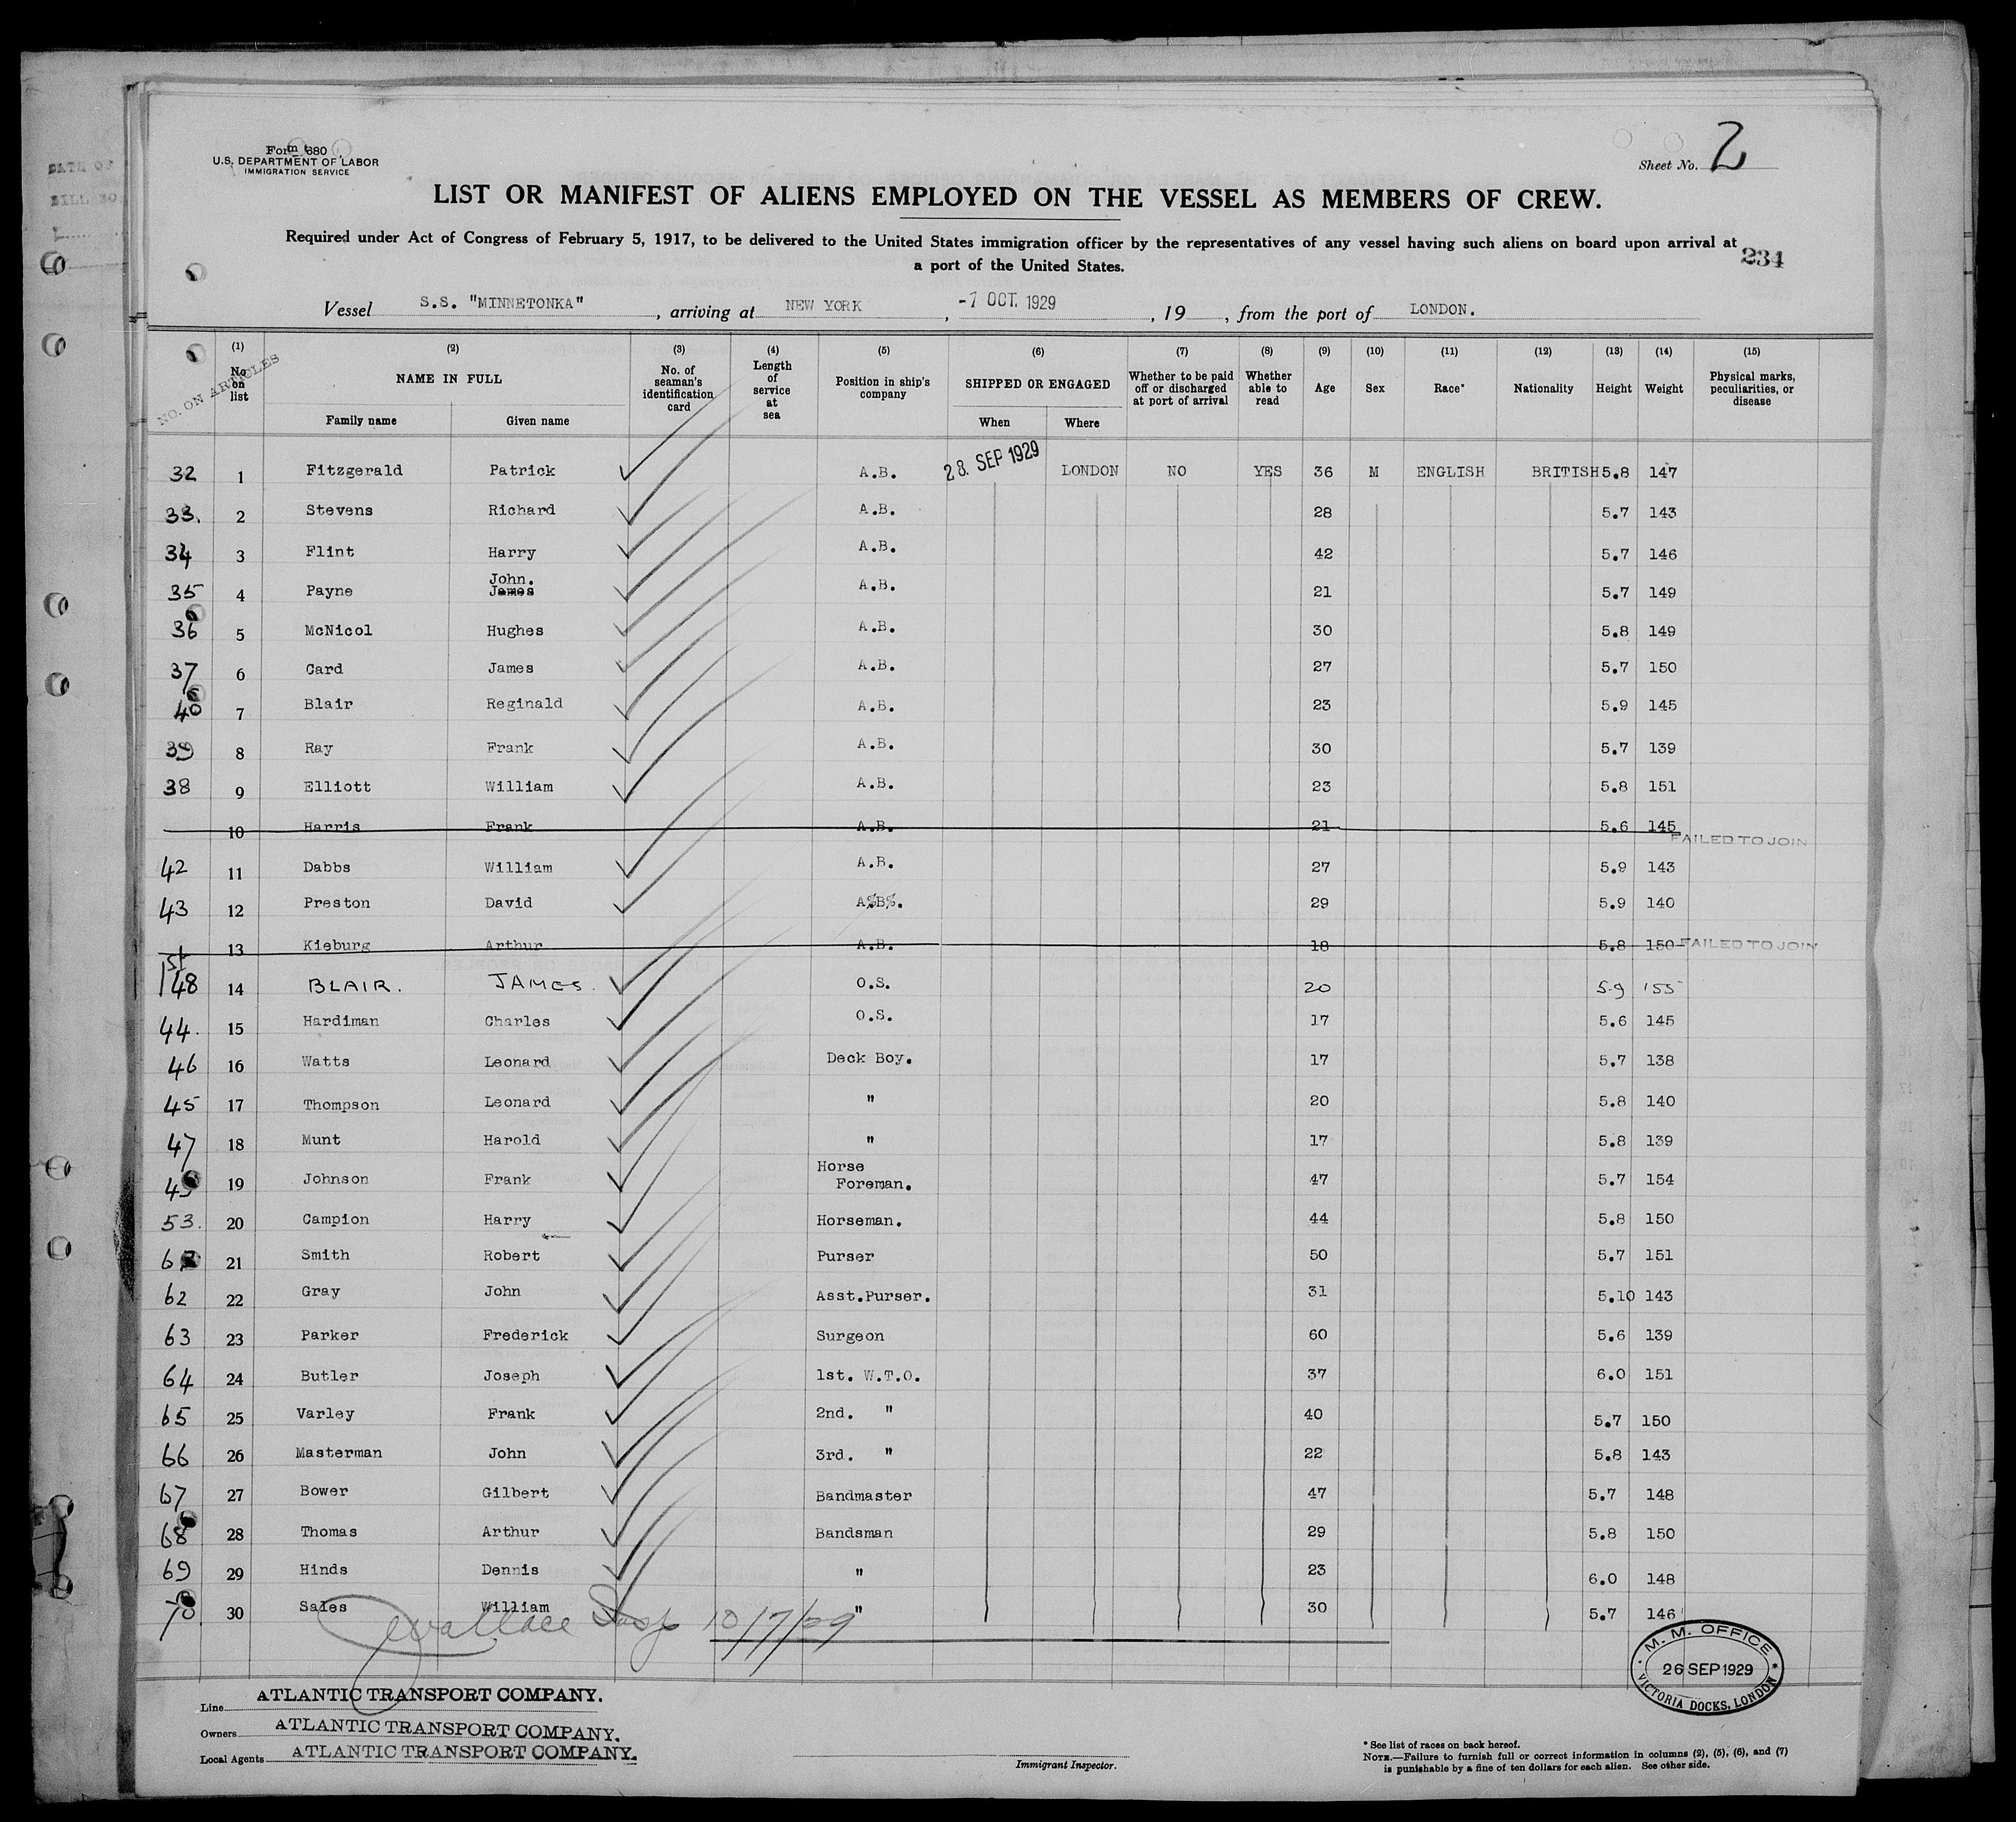 Form 680
U.S. DEPARTMENT OF LABOR
IMMIGRATION SERVICE
Sheet No. 2
LIST OR MANIFEST OF ALIENS EMPLOYED ON THE VESSEL AS MEMBERS OF CREW.
Required under Act of Congress of February 5, 1917, to be delivered to the United States immigration officer by the representatives of any vessel having such aliens on board upon arrival at
a port of the United States.
234
Vessel S.S. "MINNETONKA" , arriving at NEW YORK , -7 OCT. 1929 , 19 , from the port of LONDON.
NO. ON ARTICLES
(1) No. on list
(2) NAME IN FULL Family name Given name
(3) No. of seaman's identification card
(4) Length of service at sea
(5) Position in ship's company
(6) SHIPPED OR ENGAGED When Where
(7) Whether to be paid off or discharged at port of arrival
(8) Whether able to read
(9) Age
(10) Sex
(11) Race*
(12) Nationality
(13) Height
(14) Weight
(15) Physical marks, peculiarities, or disease
32 1 Fitzgerald Patrick A.B. 28. SEP 1929 LONDON NO YES 36 M ENGLISH BRITISH 5.8 147
33. 2 Stevens Richard A.B. 28 5.7 143
34 3 Flint Harry A.B. 42 5.7 146
35 4 Payne John. James A.B. 21 5.7 149
36 5 McNicol Hughes A.B. 30 5.8 149
37 6 Card James A.B. 27 5.7 150
40 7 Blair Reginald A.B. 23 5.9 145
39 8 Ray Frank A.B. 30 5.7 139
38 9 Elliott William A.B. 23 5.8 151
10 Harris Frank A.B. 21 5.6 145 FAILED TO JOIN
42 11 Dabbs William A.B. 27 5.9 143
43 12 Preston David A%B%. 29 5.9 140
13 Kieburg Arthur A.B. 18 5.8 150 FAILED TO JOIN
1st 48 14 BLAIR. JAMES. O.S. 20 5-9 155
44. 15 Hardiman Charles O.S. 17 5.6 145
46 16 Watts Leonard Deck Boy. 17 5.7 138
45 17 Thompson Leonard " 20 5.8 140
47 18 Munt Harold " 17 5.8 139
19 Johnson Frank Horse Foreman. 47 5.7 154
53. 20 Campion Harry Horseman. 44 5.8 150
21 Smith Robert Purser 50 5.7 151
62 22 Gray John Asst.Purser. 31 5.10 143
63 23 Parker Frederick Surgeon 60 5.6 139
64 24 Butler Joseph 1st. W.T.O. 37 6.0 151
65 25 Varley Frank 2nd. " 40 5.7 150
66 26 Masterman John 3rd. " 22 5.8 143
67 27 Bower Gilbert Bandmaster 47 5.7 148
68 28 Thomas Arthur Bandsman 29 5.8 150
69 29 Hinds Dennis " 23 6.0 148
70. 30 Sales William " 30 5.7 146
Wallace Insp 10/7/29
M. M. OFFICE
26 SEP 1929
VICTORIA DOCKS, LONDON
Line ATLANTIC TRANSPORT COMPANY.
Owners ATLANTIC TRANSPORT COMPANY.
Local Agents ATLANTIC TRANSPORT COMPANY.
Immigrant Inspector.
* See list of races on back hereof.
NOTE.—Failure to furnish full or correct information in columns (2), (5), (6), and (7)
is punishable by a fine of ten dollars for each alien. See other side.